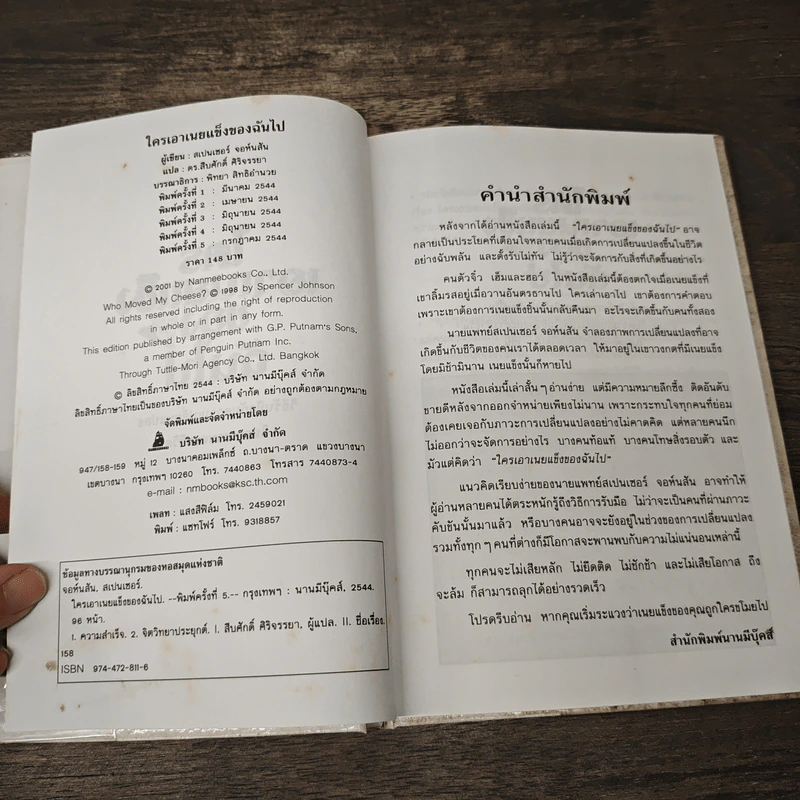 ใครเอาเนยแข็งของฉันไป
ผู้เขียน : สเปนเซอร์ จอห์นสัน
แปล : ดร.สืบศักดิ์ ศิริจรรยา
บรรณาธิการ : พิทยา สิทธิอำนวย
พิมพ์ครั้งที่ 1 : มีนาคม 2544
พิมพ์ครั้งที่ 2 : เมษายน 2544
พิมพ์ครั้งที่ 3 : มิถุนายน 2544
พิมพ์ครั้งที่ 4 : มิถุนายน 2544
พิมพ์ครั้งที่ 5 : กรกฎาคม 2544
ราคา 148 บาท
© 2001 by Nanmeebooks Co., Ltd.
Who Moved My Cheese? © 1998 by Spencer Johnson
All rights reserved including the right of reproduction
in whole or in part in any form.
This edition published by arrangement with G.P. Putnam's Sons,
a member of Penguin Putnam Inc.
Through Tuttle-Mori Agency Co., Ltd. Bangkok
© ลิขสิทธิ์ภาษาไทย 2544 : บริษัท นานมีบุ๊คส์ จำกัด
ลิขสิทธิ์ภาษาไทยเป็นของบริษัท นานมีบุ๊คส์ จำกัด อย่างถูกต้องตามกฎหมาย
จัดพิมพ์และจัดจำหน่ายโดย
บริษัท นานมีบุ๊คส์ จำกัด
947/158-159 หมู่ 12 บางนาคอมเพล็กซ์ ถ.บางนา-ตราด แขวงบางนา
เขตบางนา กรุงเทพฯ 10260 โทร. 7440863 โทรสาร 7440873-4
e-mail : nmbooks@ksc.th.com
เพลท : แสงสีฟิล์ม โทร. 2459021
พิมพ์ : แซทโฟร์ โทร. 9318857
ข้อมูลทางบรรณานุกรมของหอสมุดแห่งชาติ
จอห์นสัน, สเปนเซอร์.
ใครเอาเนยแข็งของฉันไป. --พิมพ์ครั้งที่ 5.-- กรุงเทพฯ : นานมีบุ๊คส์, 2544.
96 หน้า.
1. ความสำเร็จ. 2. จิตวิทยาประยุกต์. I. สืบศักดิ์ ศิริจรรยา, ผู้แปล. II. ชื่อเรื่อง.
158
ISBN 974-472-811-6
คำนำสำนักพิมพ์
หลังจากได้อ่านหนังสือเล่มนี้ "ใครเอาเนยแข็งของฉันไป" อาจ
กลายเป็นประโยคที่เตือนใจหลายคนเมื่อเกิดการเปลี่ยนแปลงขึ้นในชีวิต
อย่างฉับพลัน และตั้งรับไม่ทัน ไม่รู้ว่าจะจัดการกับสิ่งที่เกิดขึ้นอย่างไร
คนตัวจิ๋ว เฮ็มและฮอว์ ในหนังสือเล่มนี้ต้องตกใจเมื่อเนยแข็งที่
เขาลิ้มรสอยู่เมื่อวานอันตรธานไป ใครเล่าเอาไป เขาต้องการคำตอบ
เพราะเขาต้องการเนยแข็งชิ้นนั้นกลับคืนมา อะไรจะเกิดขึ้นกับคนทั้งสอง
นายแพทย์สเปนเซอร์ จอห์นสัน จำลองภาพการเปลี่ยนแปลงที่อาจ
เกิดขึ้นกับชีวิตของคนเราได้ตลอดเวลา ให้มาอยู่ในเขาวงกตที่มีเนยแข็ง
โดยมิช้ามินาน เนยแข็งนั้นก็หายไป
หนังสือเล่มนี้เล่าสั้นๆ อ่านง่าย แต่มีความหมายลึกซึ้ง ติดอันดับ
ขายดีหลังจากออกจำหน่ายเพียงไม่นาน เพราะกระทบใจทุกคนที่ย่อม
ต้องเคยเจอกับภาวะการเปลี่ยนแปลงอย่างไม่คาดคิด แต่หลายคนนึก
ไม่ออกว่าจะจัดการอย่างไร บางคนท้อแท้ บางคนโทษสิ่งรอบตัว และ
มัวแต่คิดว่า "ใครเอาเนยแข็งของฉันไป"
แนวคิดเรียบง่ายของนายแพทย์สเปนเซอร์ จอห์นสัน อาจทำให้
ผู้อ่านหลายคนได้ตระหนักรู้ถึงวิธีการรับมือ ไม่ว่าจะเป็นคนที่ผ่านภาวะ
คับขันนั้นมาแล้ว หรือบางคนอาจจะยังอยู่ในช่วงของการเปลี่ยนแปลง
รวมทั้งทุกๆ คนที่ต่างก็มีโอกาสจะพานพบกับความไม่แน่นอนเหล่านี้
ทุกคนจะไม่เสียหลัก ไม่ยึดติด ไม่ชักช้า และไม่เสียโอกาส ถึง
จะล้ม ก็สามารถลุกได้อย่างรวดเร็ว
โปรดรีบอ่าน หากคุณเริ่มระแวงว่าเนยแข็งของคุณถูกใครขโมยไป
สำนักพิมพ์นานมีบุ๊คส์